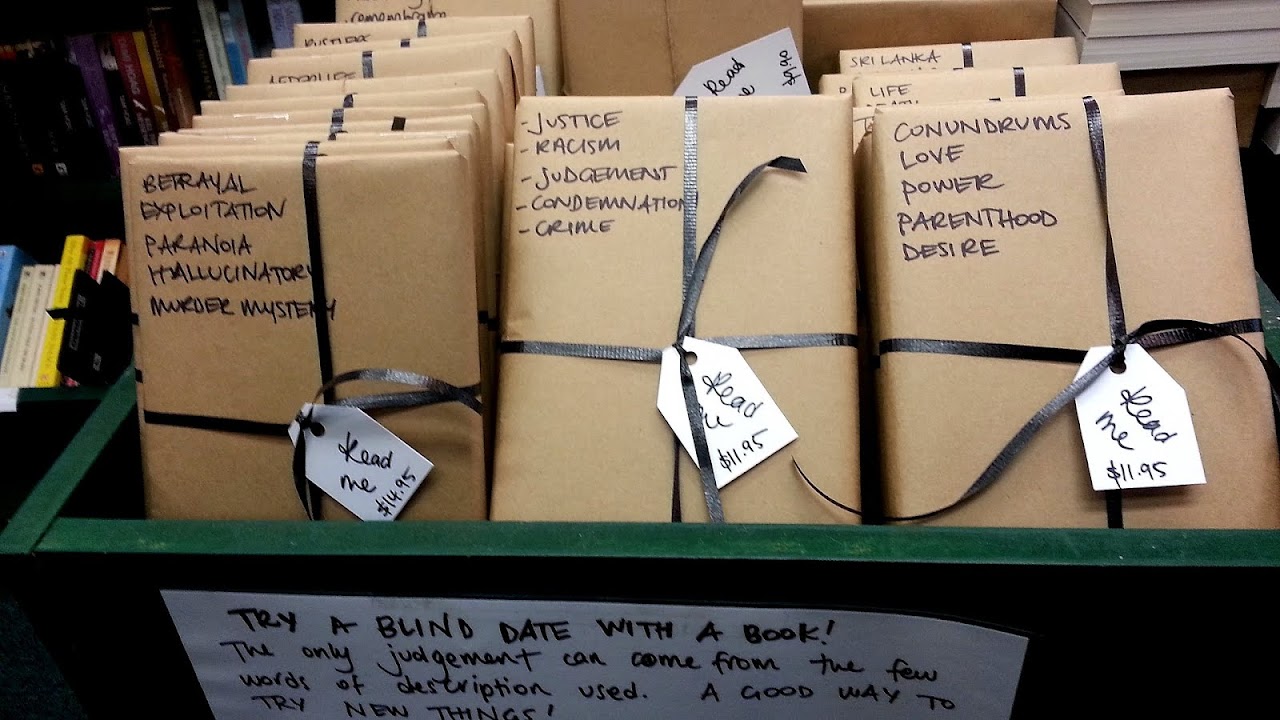 SRI LANKA
LIFE
DEATH
Read
me
BETRAYAL
EXPLOITATION
PARANOIA
HALLUCINATORY
MURDER MYSTERY
Read
me
$14.95
- JUSTICE
- RACISM
- JUDGEMENT
- CONDEMNATION
- CRIME
Read
$11.95
CONUNDRUMS
LOVE
POWER
PARENTHOOD
DESIRE
Read
me
$11.95
TRY A BLIND DATE WITH A BOOK!
The only judgement can come from the few
words of description used. A GOOD WAY TO
TRY NEW THINGS!